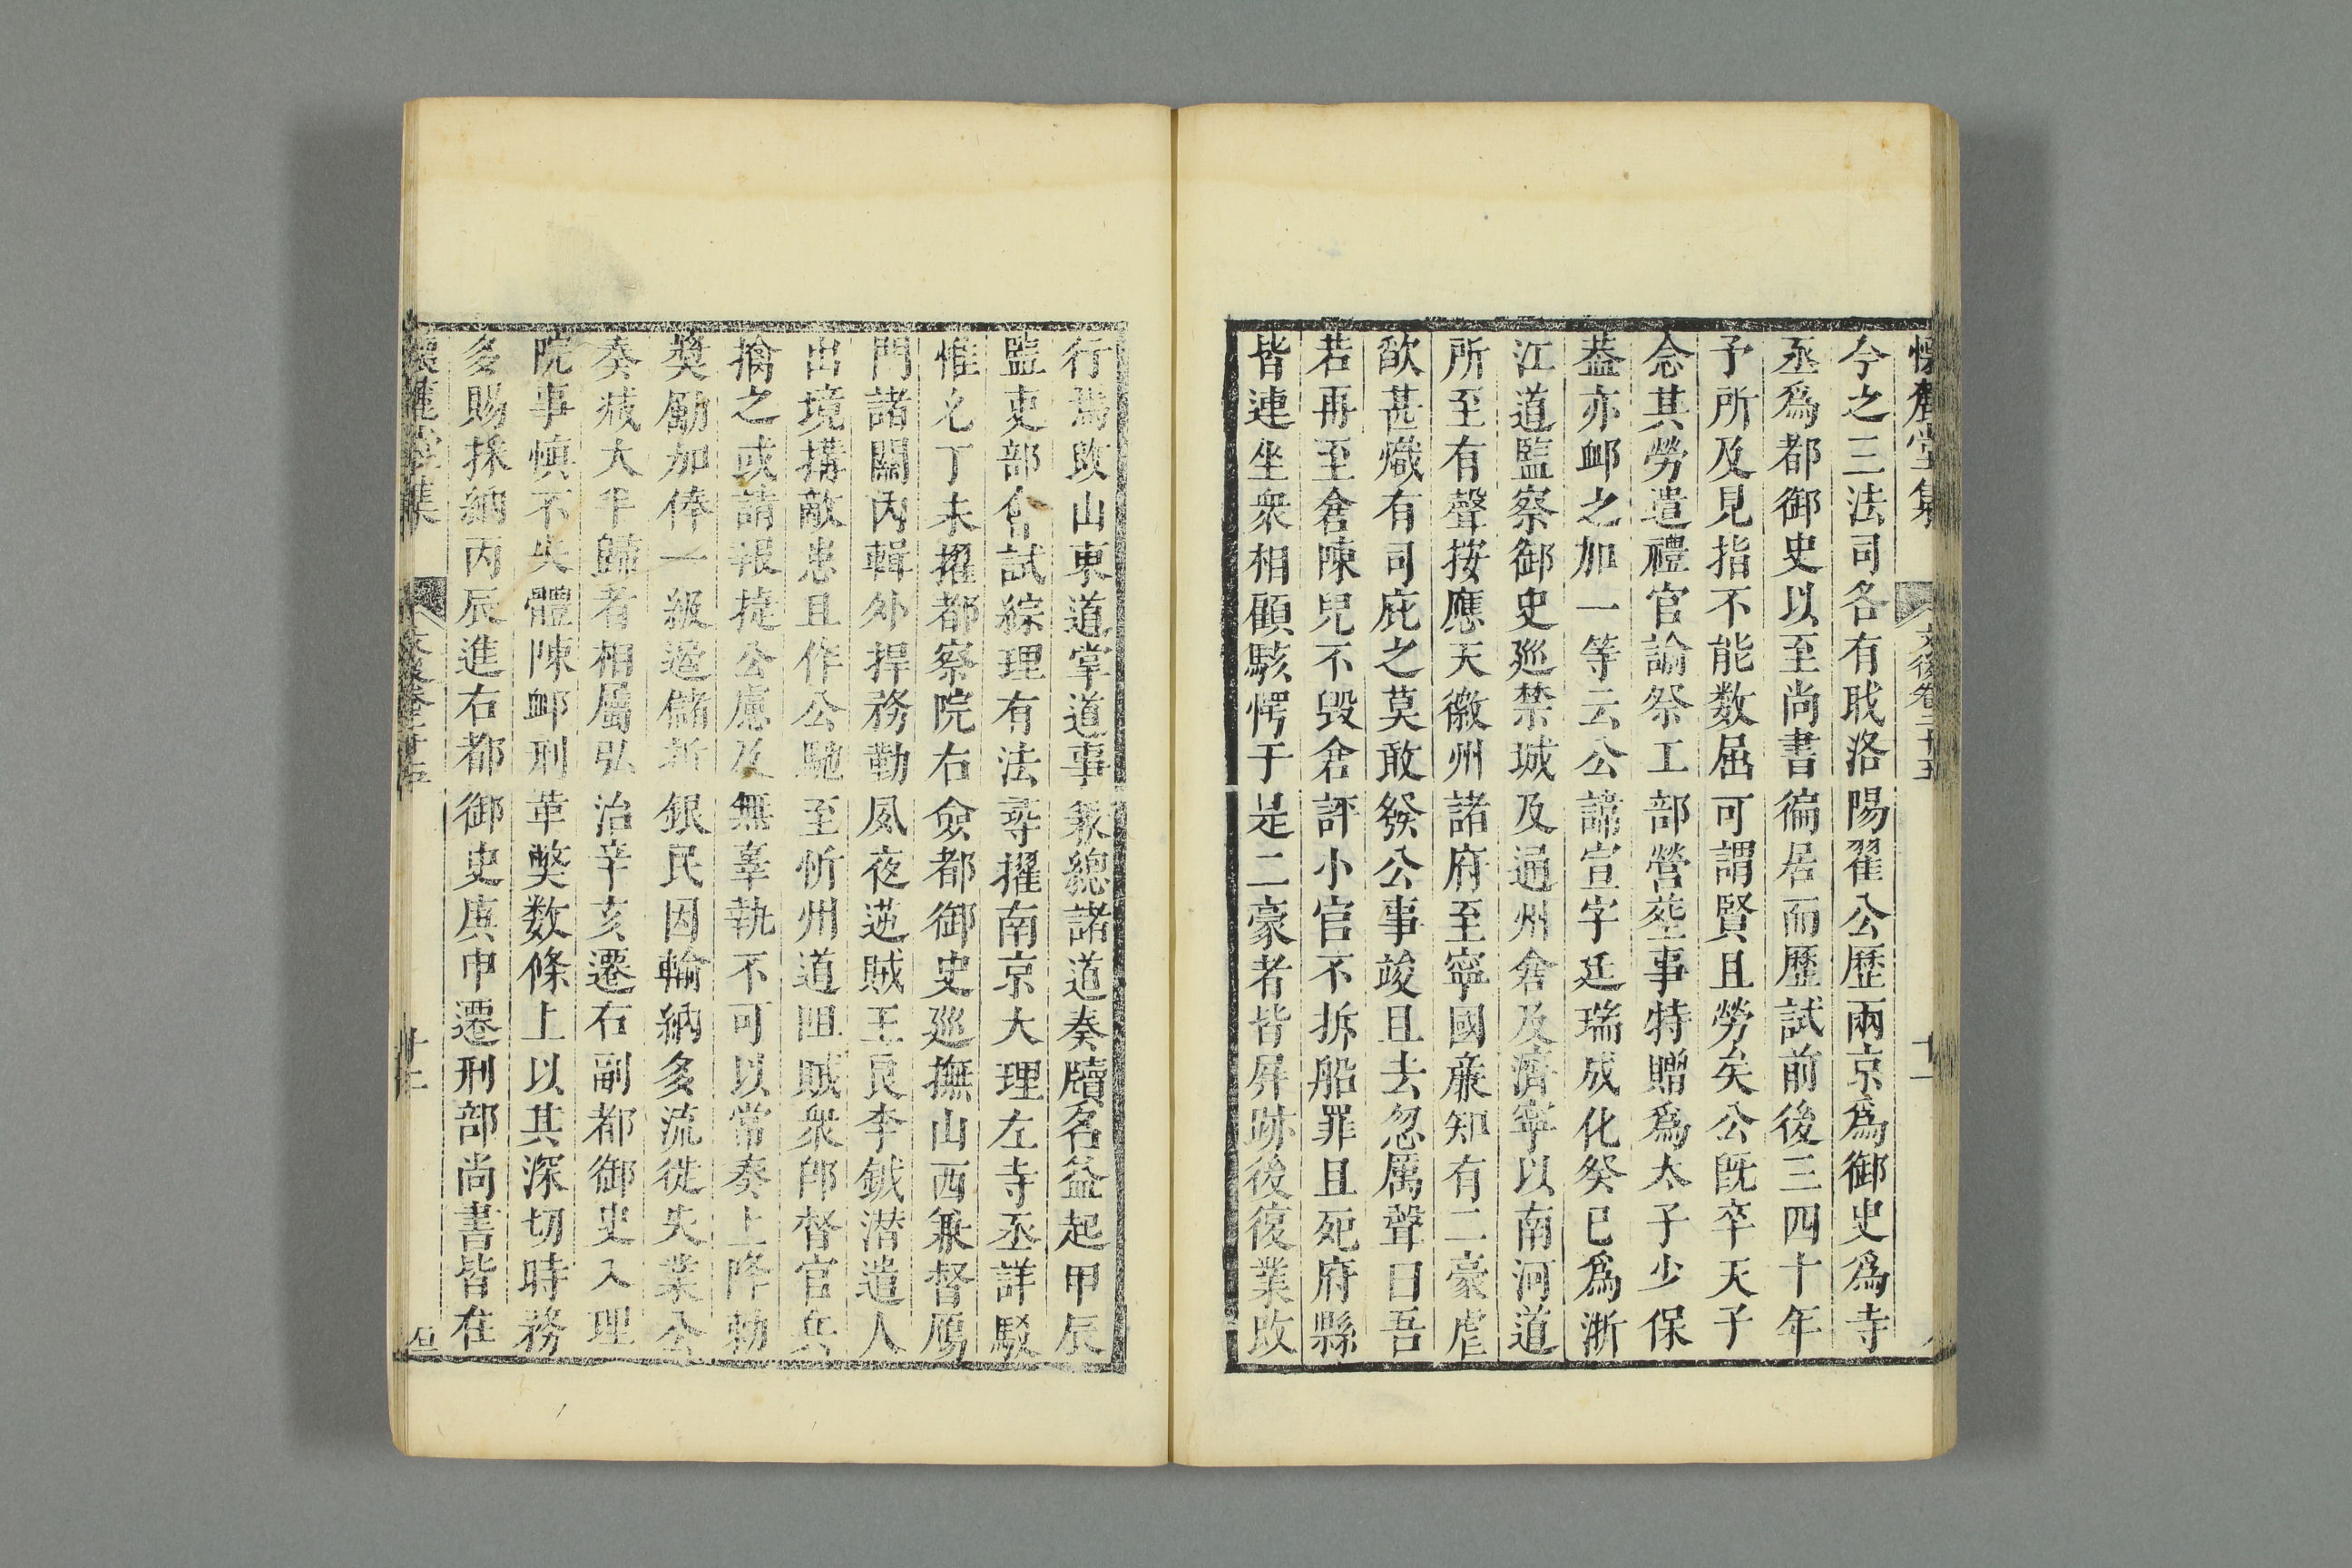 懷麓堂集 文後卷二十五 十一
今之三法司各有戝洛陽翟公歷兩京爲御史爲寺
丞爲都御史以至尚書徧居而歷試前後三四十年
予所及見指不能数屈可謂賢且勞矣公旣卒天子
念其勞遣禮官諭祭工部營塟事特贈爲太子少保
葢亦䘏之加一等云公諱宣字廷瑞成化癸巳爲浙
江道監察御史廵禁城及通州倉及濟寧以南河道
所至有聲按應天徽州諸府至寧國亷知有二豪虐
㱃甚熾有司庇之莫敢發公事竣且去忽厲聲曰吾
若再至倉陳兒不毁倉評小官不拆船罪且死府縣
皆連坐衆相顧駭愕于是二豪者皆屏跡後復業攺
行焉攺山東道掌道事兼總諸道奏牘名益起甲辰
監吏部會試綜理有法尋擢南京大理左寺丞詳駁
惟允丁未擢都察院右僉都御史廵撫山西兼督鴈
門諸關内輯外捍務勤夙夜逆賊王良李鉞潜遣人
出境搆敵患且作公馳至忻州道阻賊衆卽督官兵
擒之或請報捷公慮及無辜執不可以常奏上降勑
奬勵加俸一級邊儲折銀民因輸納多流徙失業公
奏减大半歸者相屬弘治辛亥遷右副都御史入理
院事愼不失體陳䘏刑革獘数條上以其深切時務
多賜採納丙辰進右都御史庚申遷刑部尚書皆在
懷麓堂集 文後卷二十五 十二